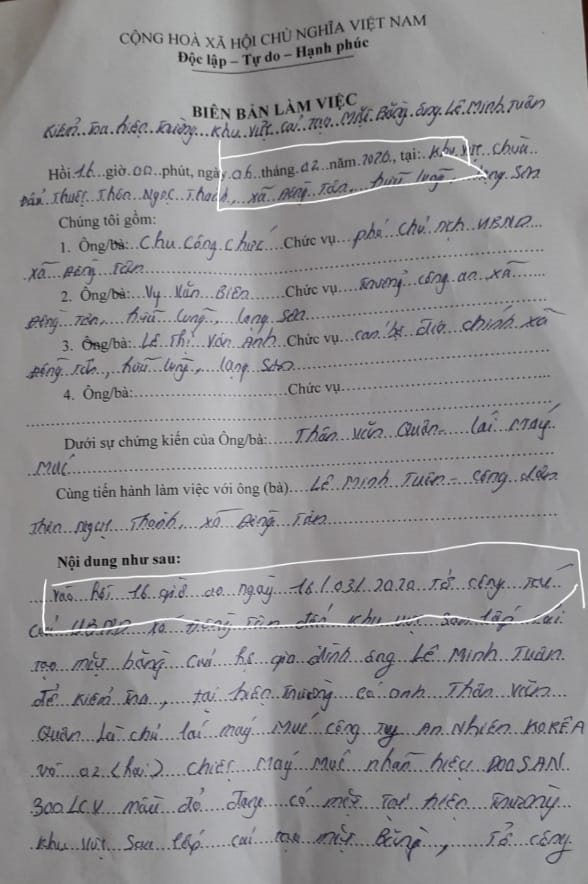 CỘNG HOÀ XÃ HỘI CHỦ NGHĨA VIỆT NAM
Độc lập – Tự do – Hạnh phúc
BIÊN BẢN LÀM VIỆC
Kiểm tra hiện trường khu vực cải tạo mặt Bằng ông Lê Minh Tuân
Hồi 16 giờ 00 phút, ngày 06 tháng 02 năm 2020, tại: khu vực chùa
Thôn Ngọc Thành, xã Đồng Tân, hữu lũng, Lạng Sơn
Chúng tôi gồm:
1. Ông/bà: Chu Công Chức Chức vụ phó chủ tịch UBND
xã Đồng Tân
2. Ông/bà: Vy Văn Biên Chức vụ trưởng công an xã
Đồng Tân, hữu lũng, lạng Sơn
3. Ông/bà: Lê Thị Vân Anh Chức vụ can bộ địa chính xã
Đồng Tân, hữu lũng, lạng Sơn
4. Ông/bà: Chức vụ
Dưới sự chứng kiến của Ông/bà: Thân Văn Quân lái máy
múc
Cùng tiến hành làm việc với ông (bà) Lê Minh Tuân – công dân
thôn Ngọc Thành, xã Đồng Tân
Nội dung như sau:
vào hồi 16 giờ 00 ngày 16/03/2020 Tổ công tác
của UBND xã Đồng Tân đến khu vực san lấp cải
tạo mặt bằng của hộ gia đình ông Lê Minh Tuân
để kiểm tra, tại hiện trường có anh Thân Văn
Quân là chủ lái máy múc công ty An Nhiên KOREA
và 02 (hai) chiếc máy múc nhãn hiệu DOOSAN
300LCV màu đỏ đang có mặt tại hiện trường
khu vực san lấp cải tạo mặt Bằng, Tổ công